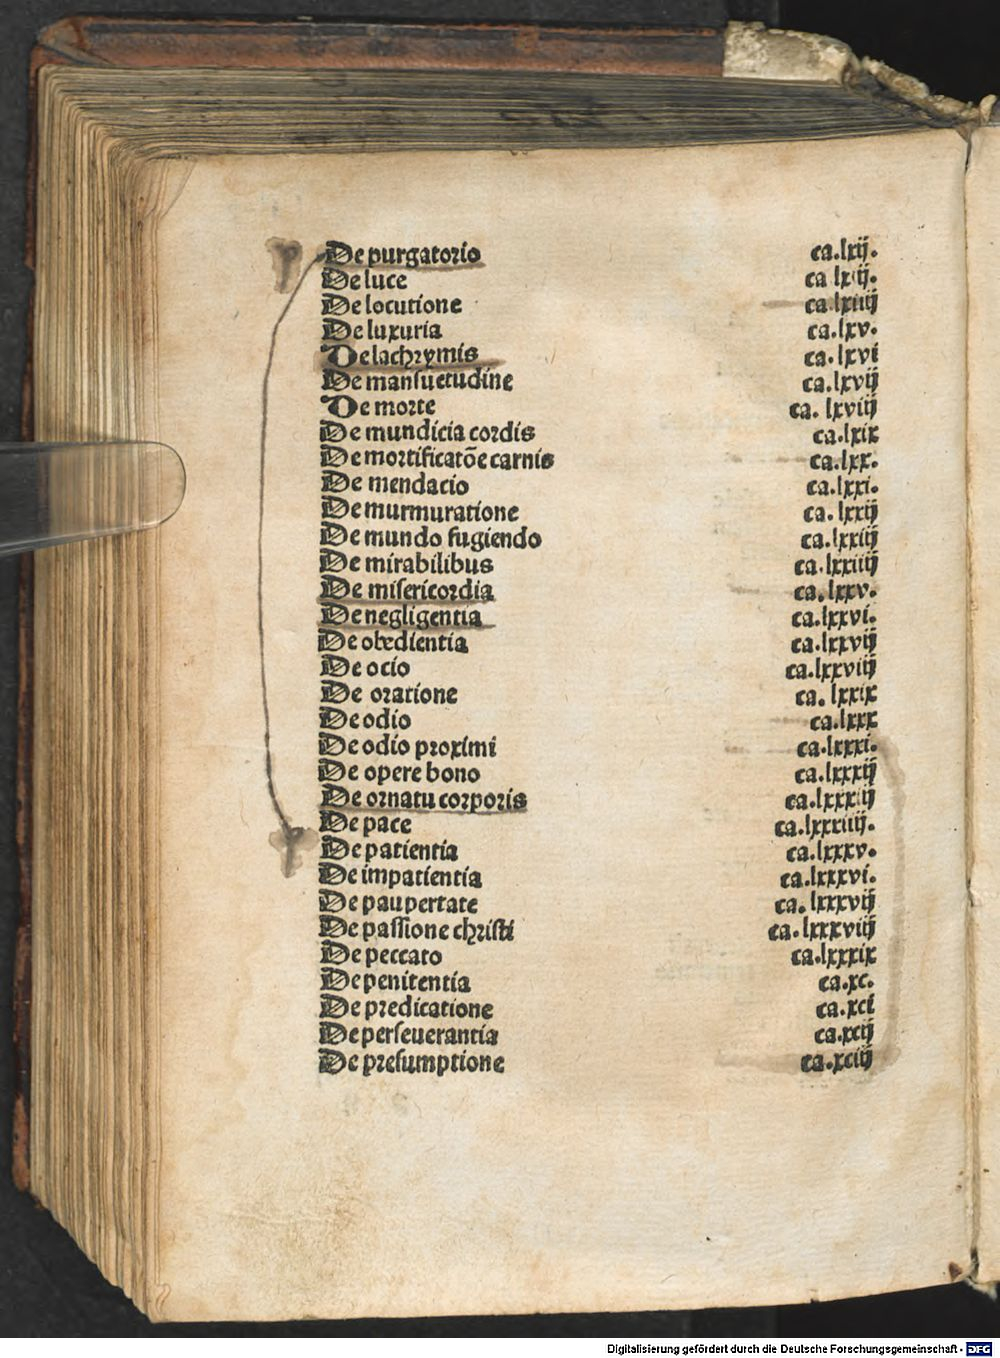 De purgatorio ca.lxij.
De luce ca lxiij.
De locutione ca lxiiij
De luxuria ca.lxv.
De lachrymis ca.lxvi
De mansuetudine ca.lxvij
De morte ca. lxviij
De mundicia cordis ca.lxix
De mortificatõe carnis ca.lxx.
De mendacio ca.lxxi.
De murmuratione ca.lxxij
De mundo fugiendo ca.lxxiij
De mirabilibus ca.lxxiiij
De misericordia ca.lxxv.
De negligentia ca.lxxvi.
De obedientia ca.lxxvij
De ocio ca.lxxviij
De oratione ca.lxxix
De odio ca.lxxx
De odio proximi ca.lxxxi.
De opere bono ca.lxxxij
De ornatu corporis ca.lxxxiij
De pace ca.lxxxiiij.
De patientia ca.lxxxv.
De impatientia ca.lxxxvi.
De paupertate ca.lxxxvij
De passione christi ca.lxxxviij
De peccato ca.lxxxix
De penitentia ca.xc.
De predicatione ca.xci
De perseuerantia ca.xcij
De presumptione ca.xciij
Digitalisierung gefördert durch die Deutsche Forschungsgemeinschaft - DFG